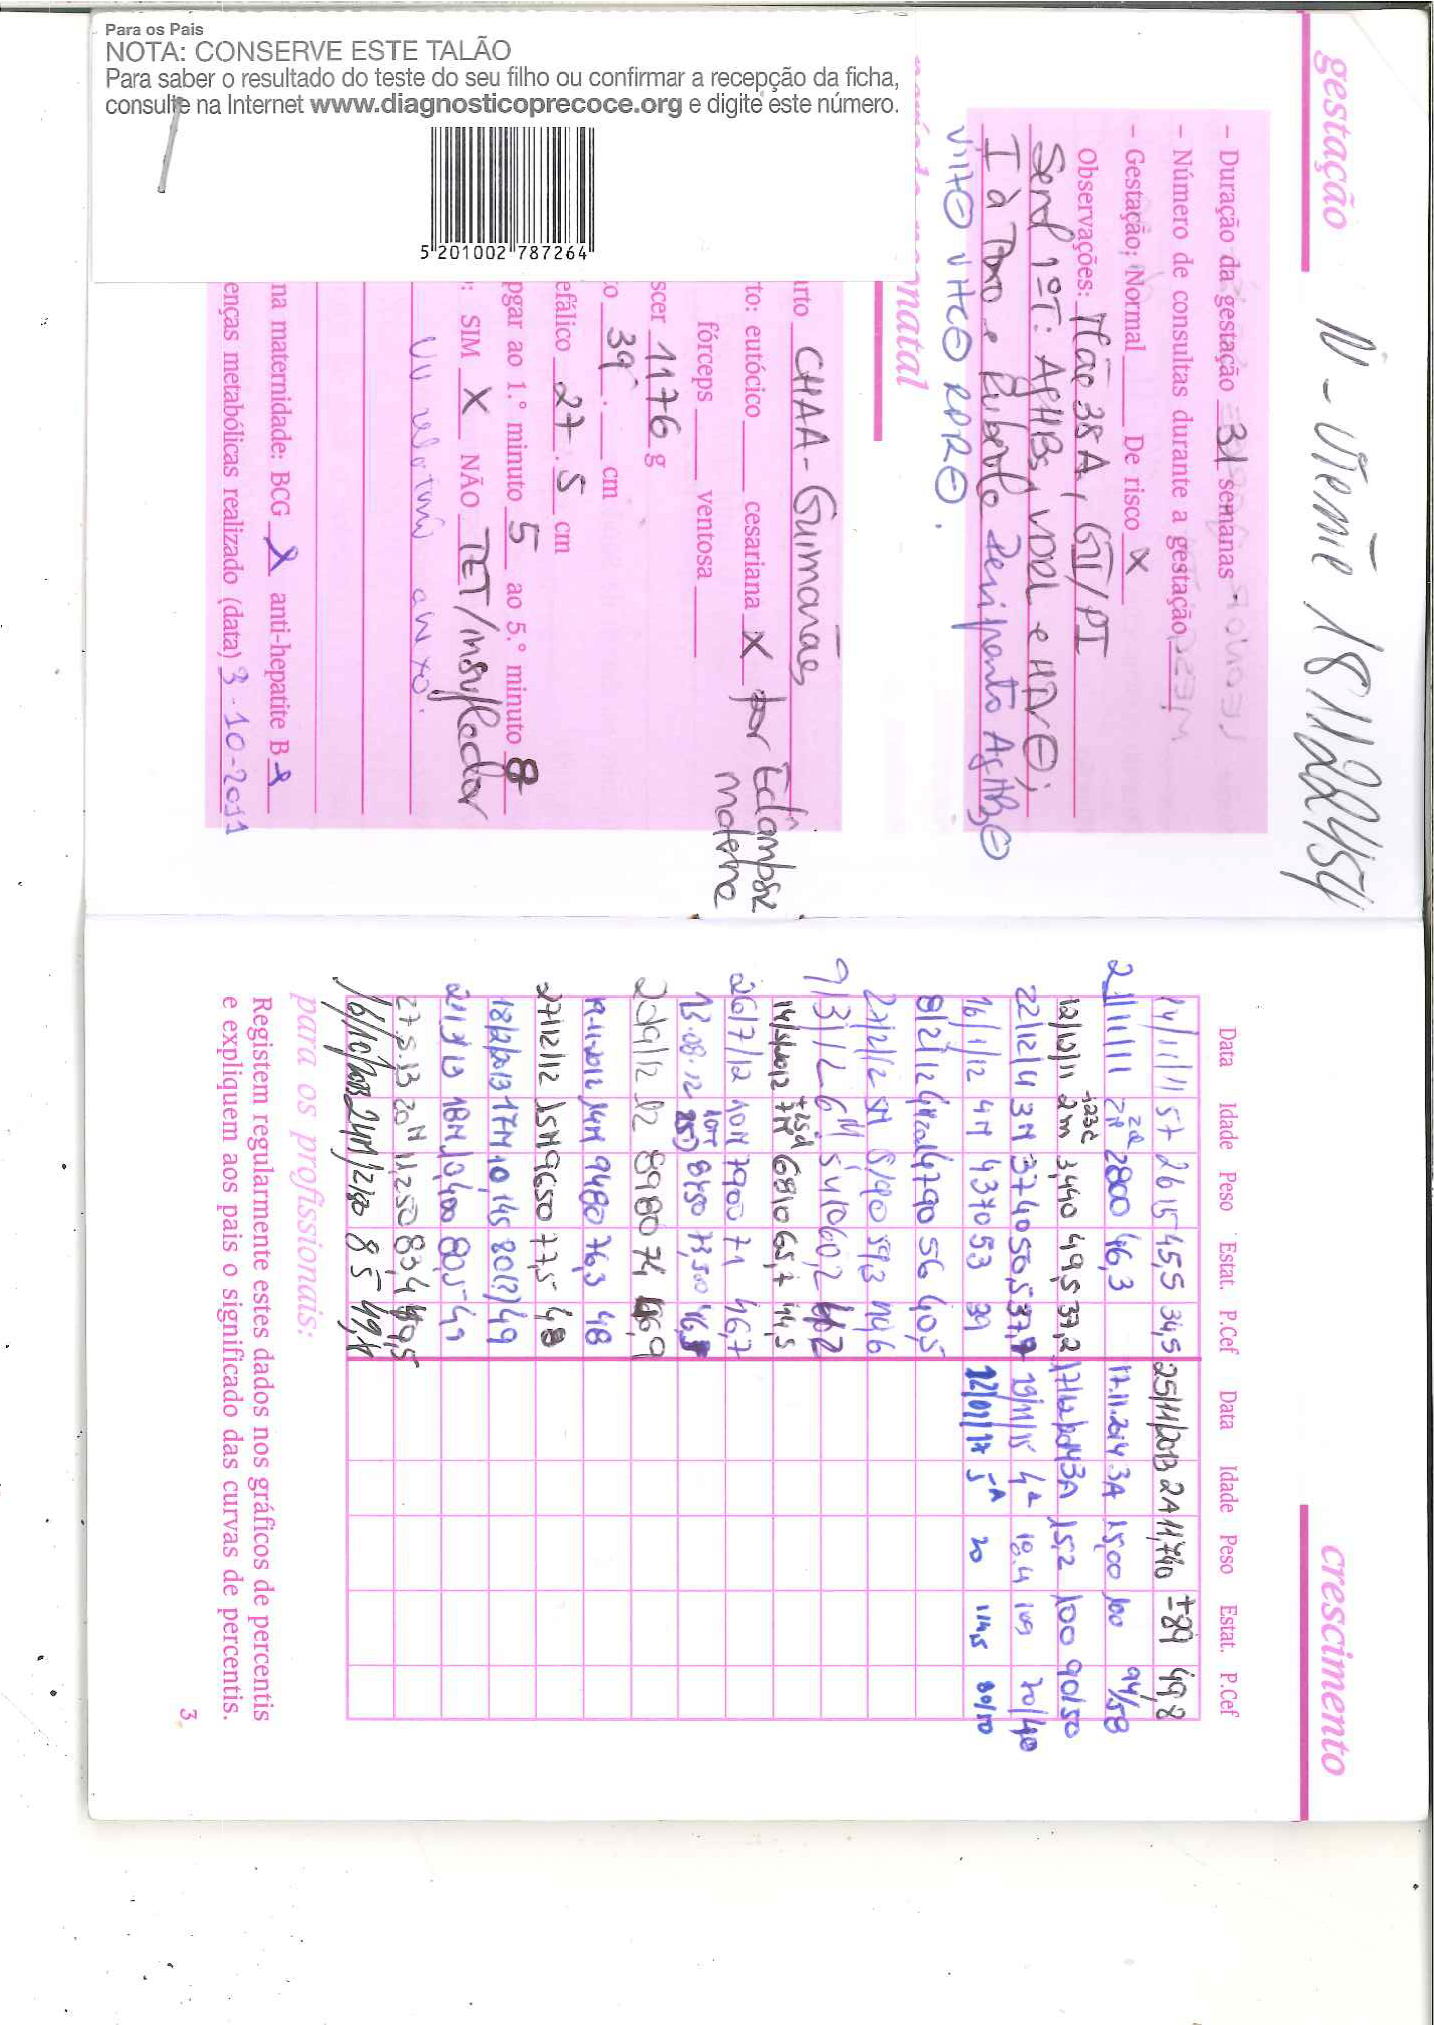 Para os Pais
NOTA: CONSERVE ESTE TALÃO
Para saber o resultado do teste do seu filho ou confirmar a recepção da ficha,
consulte na Internet www.diagnosticoprecoce.org e digite este número.
5 201002 787264
gestação
- Duração da gestação 31 semanas
- Número de consultas durante a gestação
- Gestação: Normal De risco X
Observações: Mãe 38A, GII/PI
Serol 1ºT: AgHBs, VDRL e HIV⊖;
I à Toxo e Rubéola AgHBs⊖
VIH⊖ VHC⊖ RPR⊖.
natal
arto CHAA - Guimarães
to: eutócico cesariana X por Eclampsia
materna
fórceps ventosa
scer 1176 g
o 39 . cm
efálico 27 . 5 cm
pgar ao 1.º minuto 5 ao 5.º minuto 8
: SIM X NÃO TET/insuflador
na maternidade: BCG X anti-hepatite B
enças metabólicas realizado (data) 3-10-2011
crescimento
Data Idade Peso Estat. P.Cef Data Idade Peso Estat. P.Cef
14/11/11 2615 45,5 34,5 25/11/2013 2A 11,740 ±89 49,8
21/11/11 2800 46,3 17.11.2014 3A 15,00 100 94/58
12/12/11 2m 3,440 49,5 37,2 3A 15,2 100 90/50
22/12/11 3M 3740 50,5 37,9 19/11/15 4A 18.4 109 70/40
16/1/12 4M 4370 53 39 12/01/17 5A 20 114,5 80/50
8/2/12 4790 56 40,5
27/2/12 5M 5190 59,3
9/3/12 6M
7M 6810 65,7 44,5
26/7/12 10M 7900 71 46,7
13.08.12 8450 73,500
12 8980 74 46,9
19.11.2012 14M 9480 76,3 48
27/12/12 15M 9650 77,5 48
18/2/2013 17M 10,145 80(?) 49
21/3/13 18M 10,400 80,5 49
27.5.13 20M 11,250 83,4 49,5
16/10/2013 24M 12,120 85 49,4
para os profissionais:
Registem regularmente estes dados nos gráficos de percentis
e expliquem aos pais o significado das curvas de percentis.
3